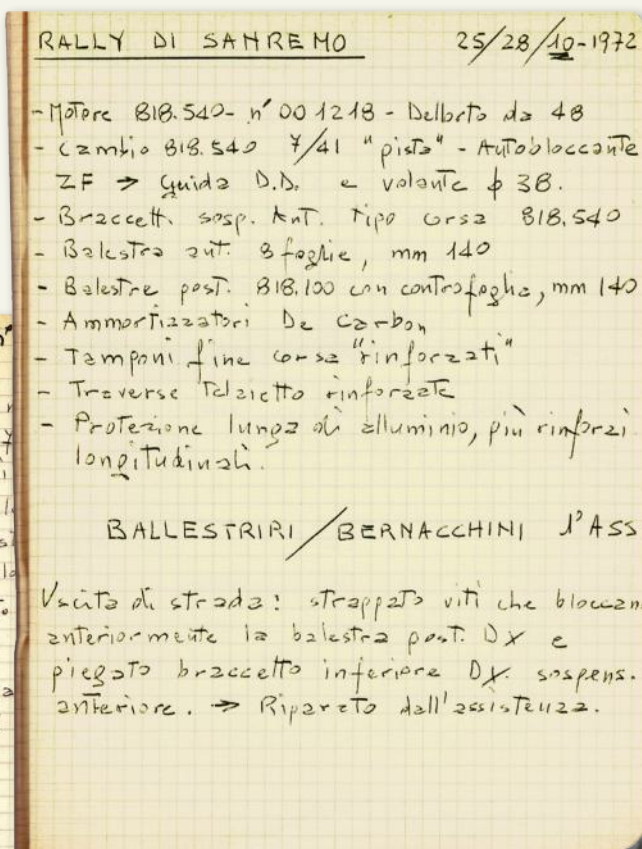 RALLY DI SANREMO 25/28/10-1972
- Motore 818.540- n° 001218 - Dellorto da 48
- Cambio 818.540 7/41 "pista" - Autobloccante
ZF → Guida D.D. e volante ϕ 38.
- Braccett. sosp. Ant. tipo corsa 818.540
- Balestra ant. 8 foglie, mm 140
- Balestre post. 818.100 con controfoglia, mm 140
- Ammortizzatori De Carbon
- Tamponi fine corsa "rinforzati"
- Traverse Telaietto rinforzate
- Protezione lunga di alluminio, più rinforzi
longitudinali.
BALLESTRIRI/BERNACCHINI 1° ASS
Uscita di strada: strappato viti che bloccan
anteriormente la balestra post. DX e
piegato braccetto inferiore DX. sospens.
anteriore. → Riparato dall'assistenza.